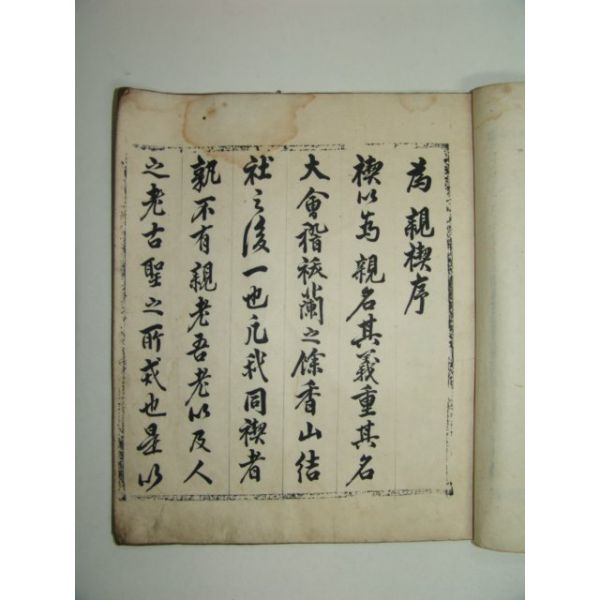 為親禊序
禊以為親名其義重其名
大會稽祓蘭之餘香山結
社之後一也凡我同禊者
孰不有親老吾老以及人
之老古聖之所戒也是以